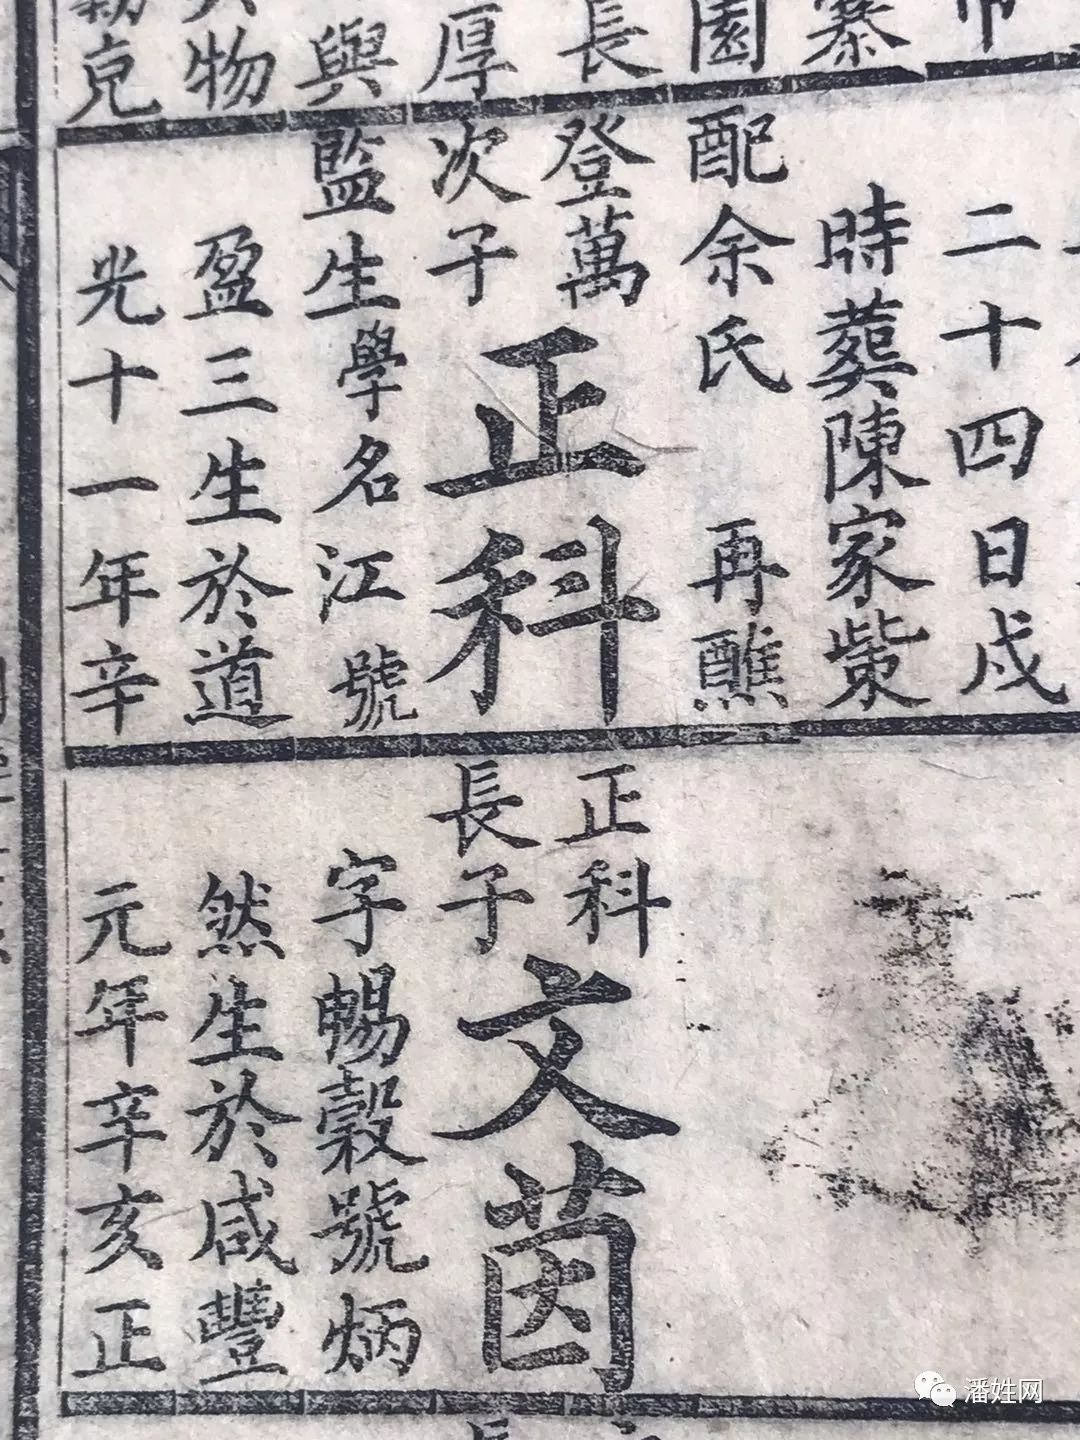 寨
園
長
厚
與
物
克
二十四日戌
時葬陳家柴
配余氏 再醮
登萬
次子
正科
監生學名江號
盈三生於道
光十一年辛
正科
長子
文茵
字暢穀號炳
然生於咸豐
元年辛亥正
長
潘姓网